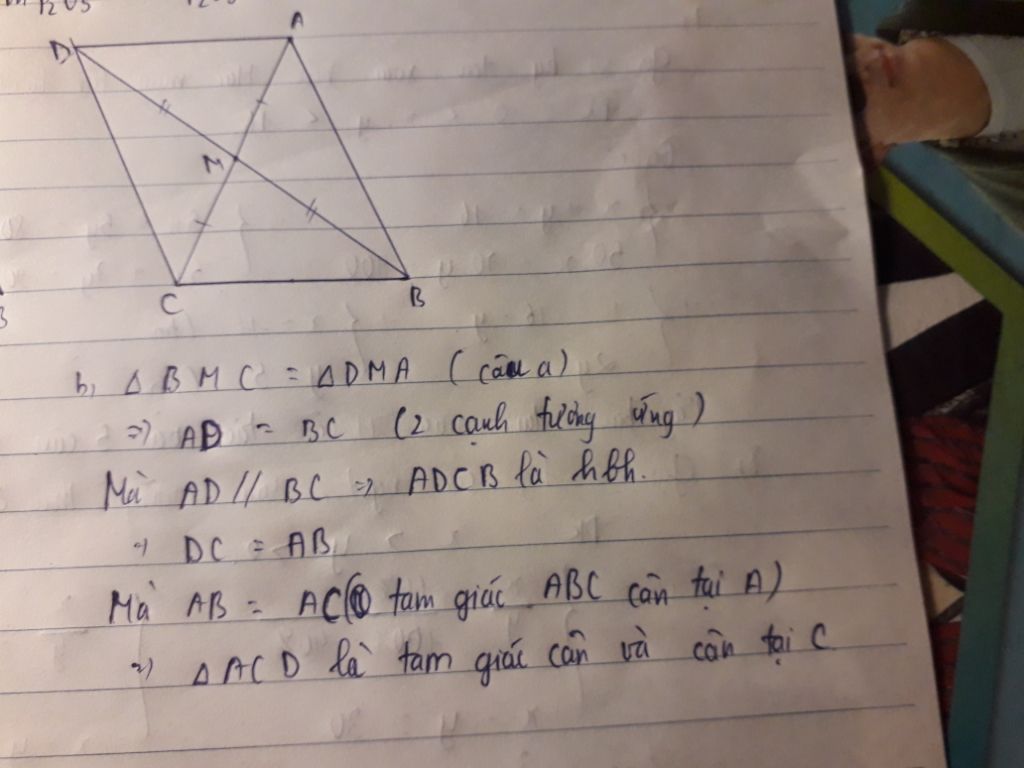 D
A
M
C
B
b, △ BMC = △DMA (câu a)
=> AD = BC (2 cạnh tương ứng)
Mà AD // BC => ADCB là hbh.
=> DC = AB
Mà AB = AC ( tam giác ABC cân tại A)
=> △ACD là tam giác cân và cân tại C